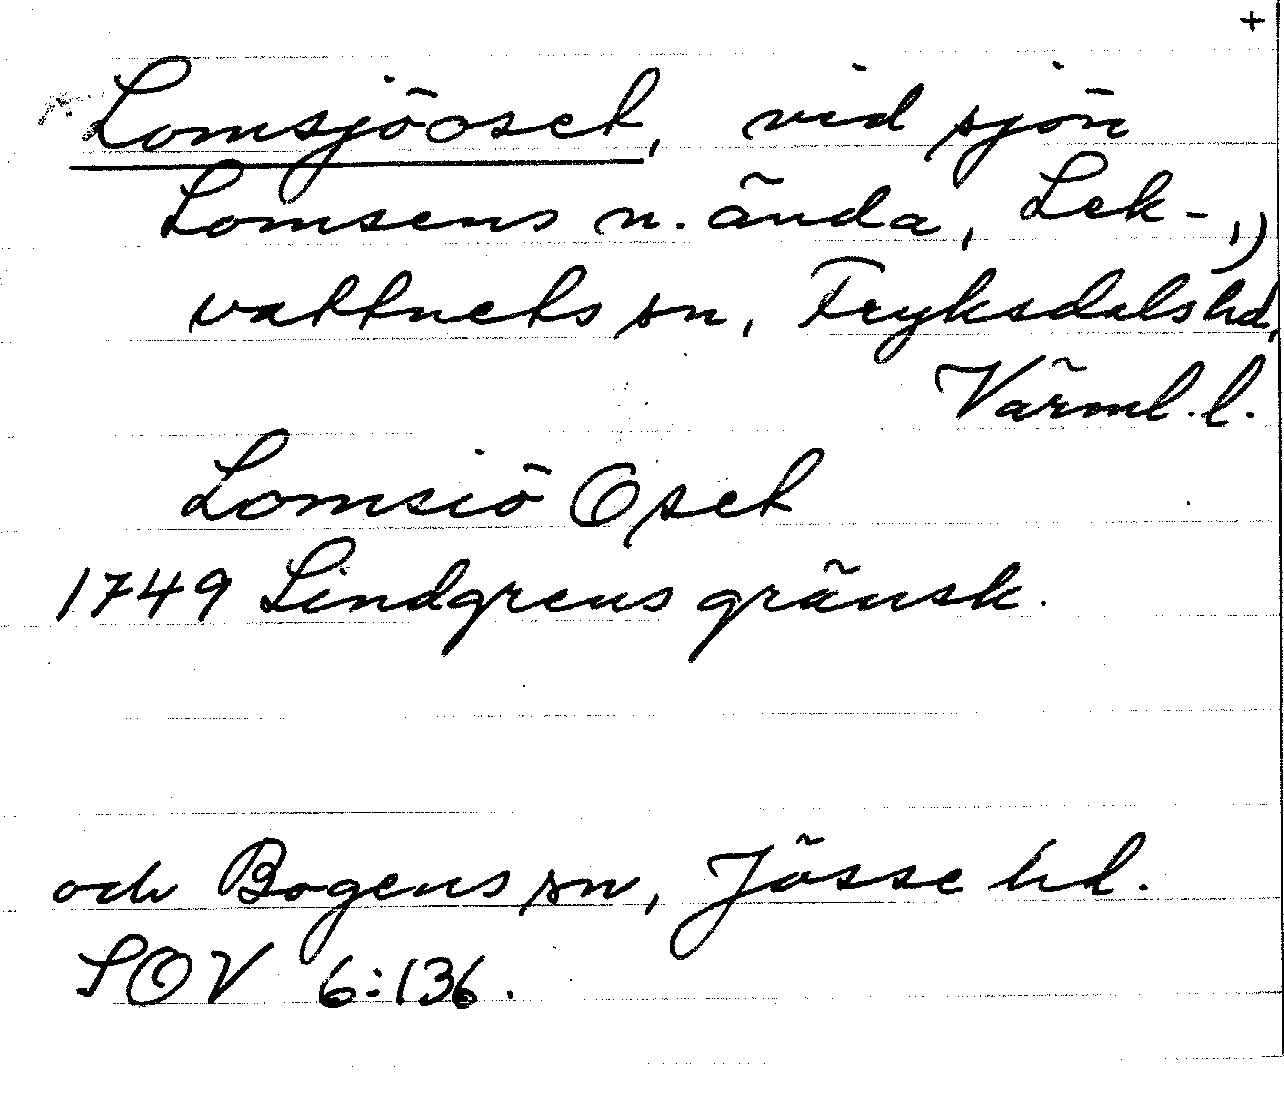 +
Lomsjöoset, vid sjön
Lomsens n. ända, Lek- 1)
vattnets sn, Fryksdals hd,
Värml. l.
Lomsiö Oset
1749 Lindgrens gränsk.
och Bogens sn, Jösse hd.
SOV 6:136.